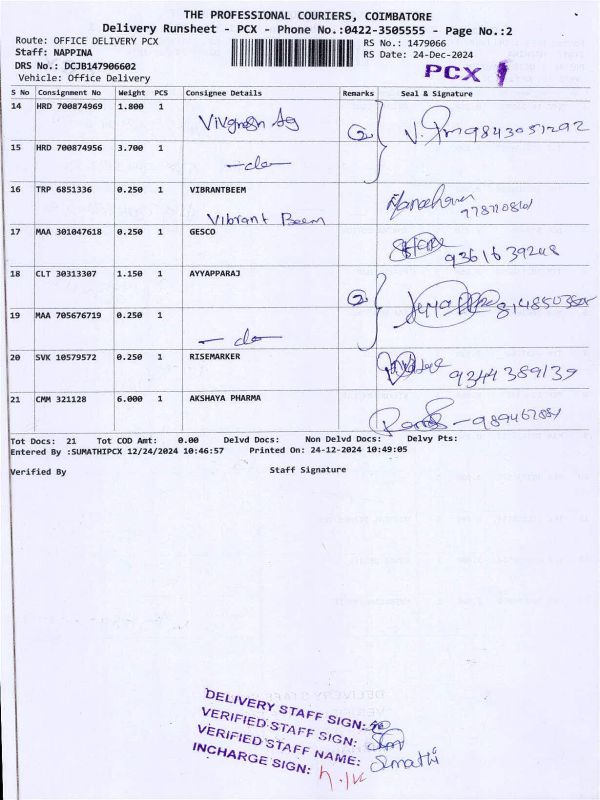 THE PROFESSIONAL COURIERS, COIMBATORE
Delivery Runsheet - PCX - Phone No.:0422-3505555 - Page No.:2
Route: OFFICE DELIVERY PCX
Staff: NAPPINA
DRS No.: DCJB147906602
Vehicle: Office Delivery
RS No.: 1479066
RS Date: 24-Dec-2024
PCX
S No Consignment No Weight PCS Consignee Details Remarks Seal & Signature
14 HRD 700874969 1.800 1 2 9843051292
15 HRD 700874956 3.700 1 —do—
16 TRP 6851336 0.250 1 VIBRANTBEEM
Vibrant Beem
17 MAA 301047618 0.250 1 GESCO
18 CLT 30313307 1.150 1 AYYAPPARAJ 2
19 MAA 705676719 0.250 1 —do—
20 SVK 10579572 0.250 1 RISEMARKER 9344389139
21 CMM 321128 6.000 1 AKSHAYA PHARMA
Tot Docs: 21 Tot COD Amt: 0.00 Delvd Docs: Non Delvd Docs: Delvy Pts:
Entered By :SUMATHIPCX 12/24/2024 10:46:57 Printed On: 24-12-2024 10:49:05
Verified By Staff Signature
DELIVERY STAFF SIGN:
VERIFIED STAFF SIGN:
VERIFIED STAFF NAME: Sumathi
INCHARGE SIGN: